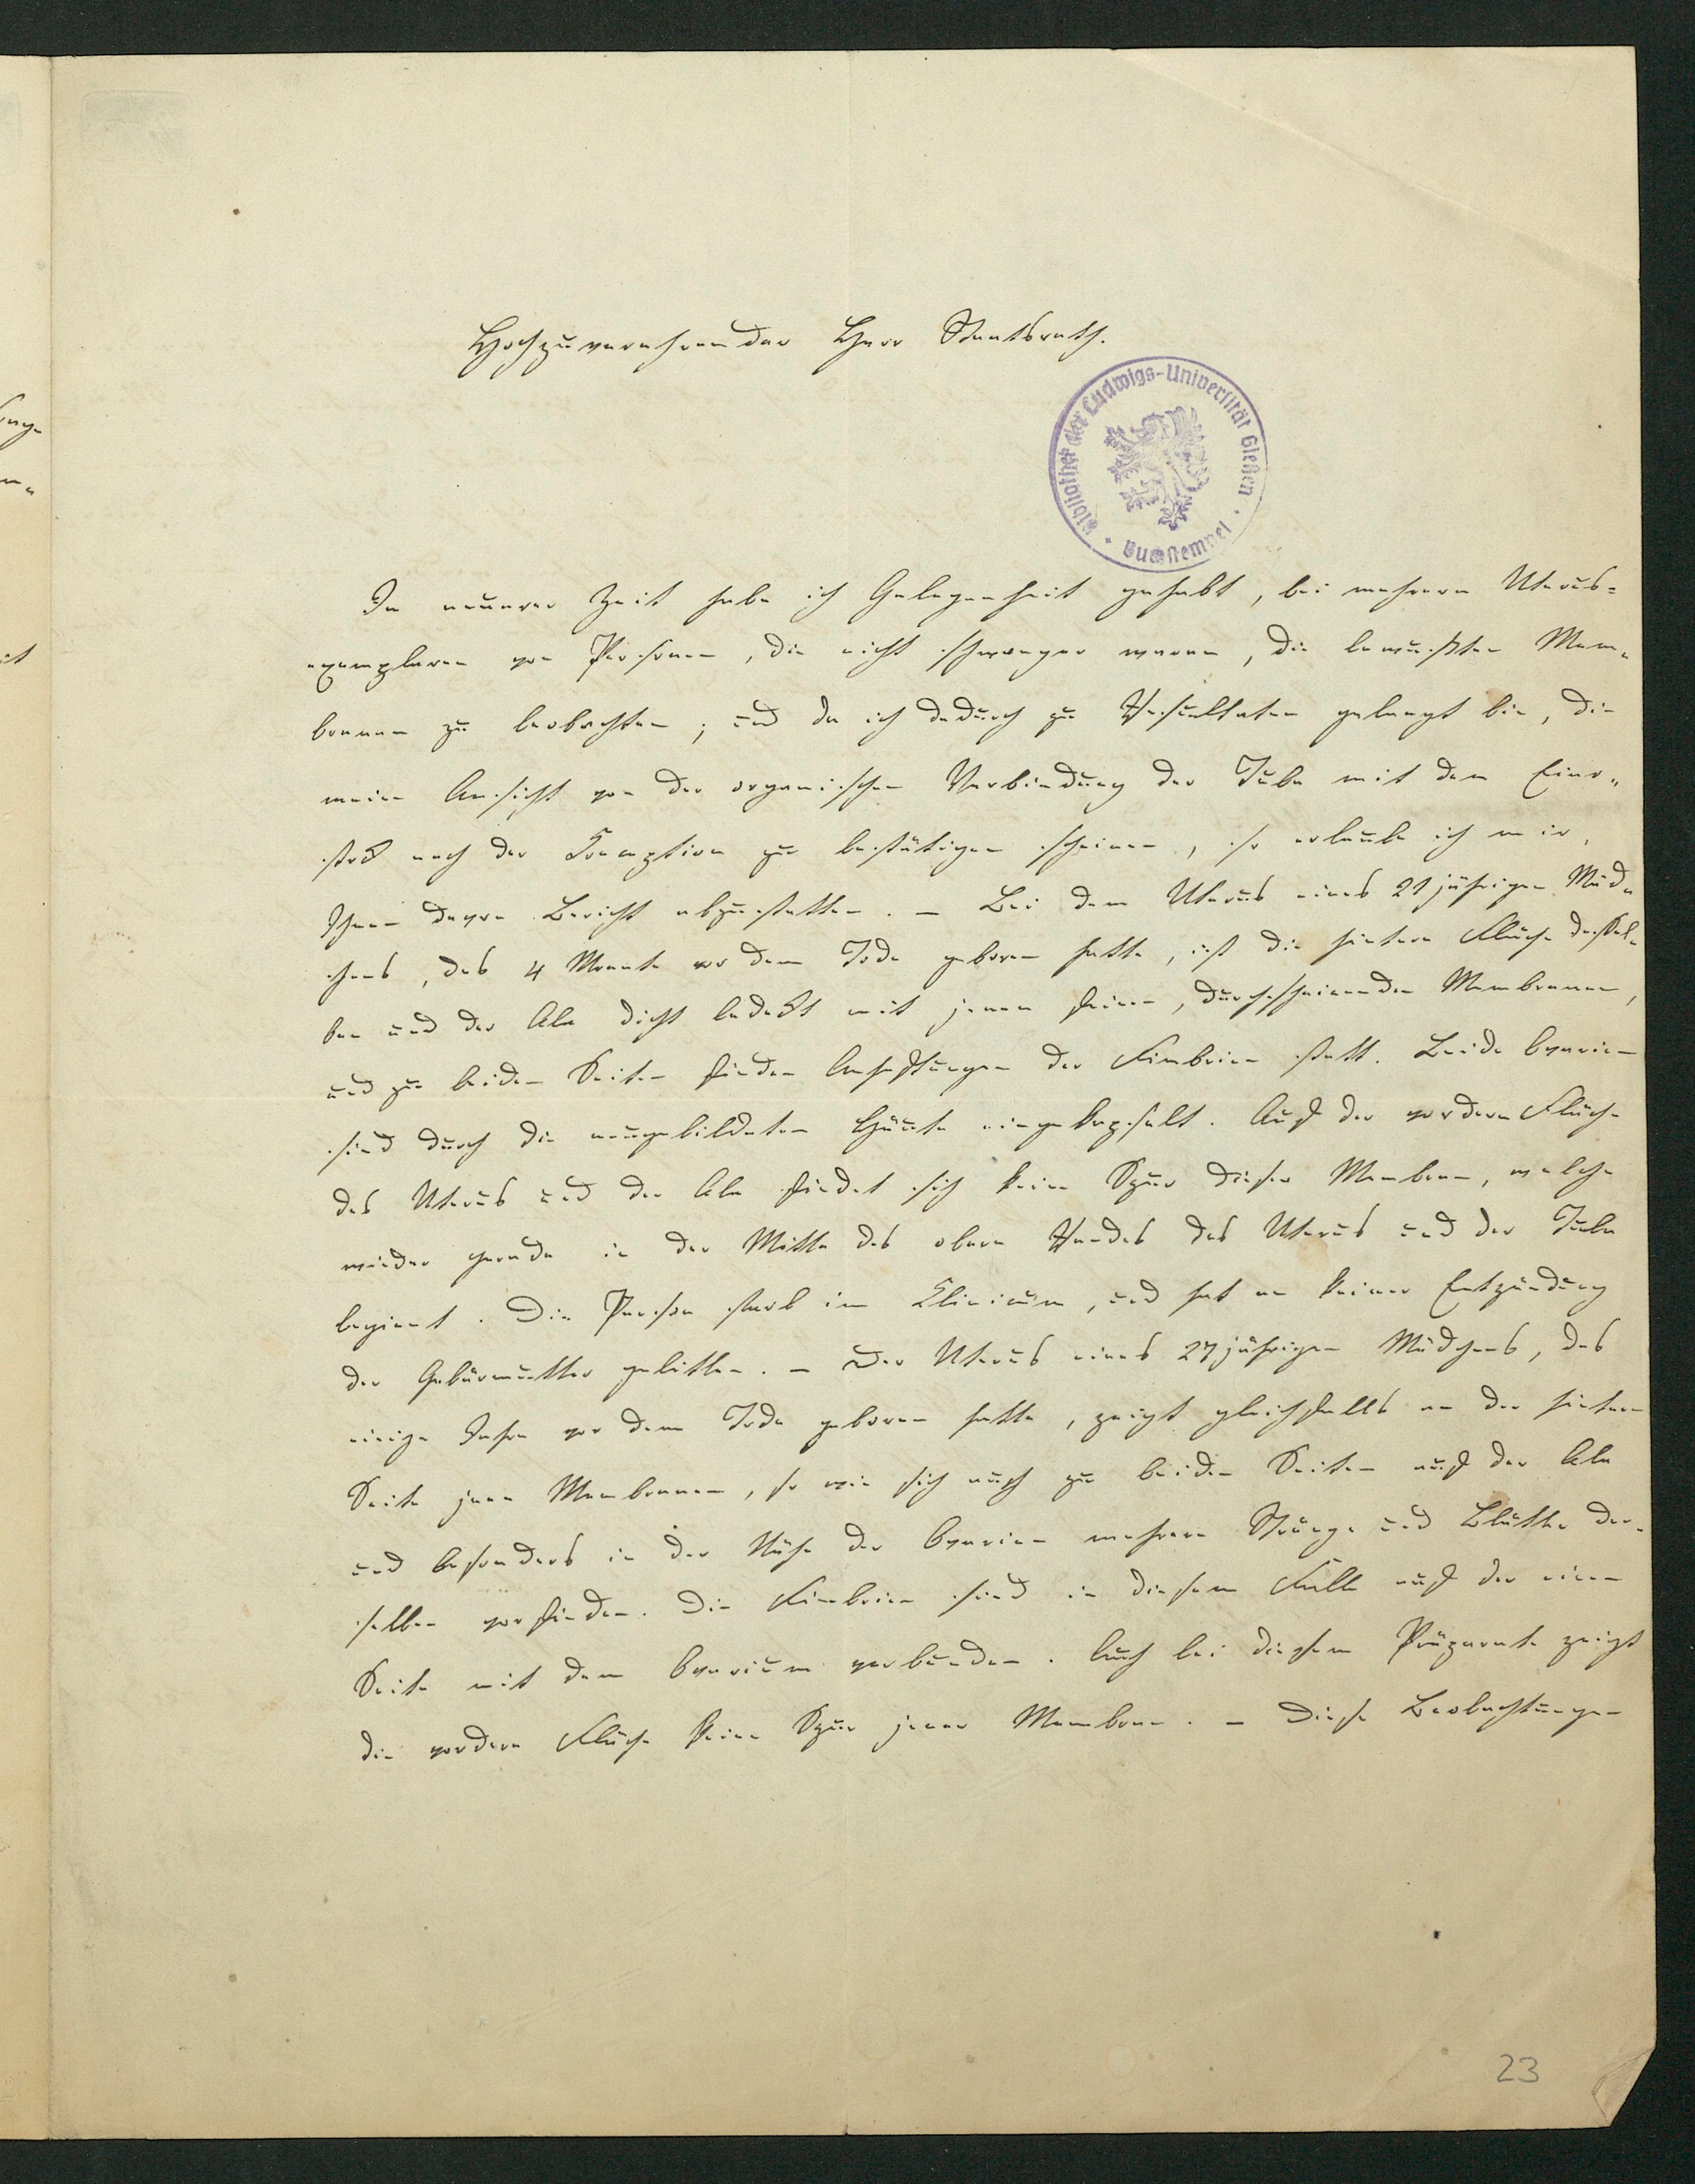 Hochzuverehrender Herr Staatsrath.
Bibliothek der Ludwigs-Universität Gießen · Buchstempel ·
In neuerer Zeit habe ich Gelegenheit gehabt, bei mehrern Uterus=
exemplaren von Personen, die nicht schwanger waren, die bewußten Mem„
branen zu beobachten; und da ich dadurch zu Resultaten gelangt bin, die
meine Ansicht von der organischen Verbindung der Tube mit dem Eier„
stock nach der Conception zu bestätigen scheinen, so erlaube ich mir,
Ihnen davon Bericht abzustatten. – Bei dem Uterus eines 21 jährigen Mäd„
chens, das 4 Monate vor dem Tode geboren hatte, ist die hintere Fläche dessel„
ben und der Ala dicht bedeckt mit jenen feinen, durchscheinenden Membranen,
und zu beiden Seiten finden Anheftungen der Fimbrien statt. Beide Ovarien
sind durch die neugebildeten Häute eingekapselt. Auf der vordern Fläche
des Uterus und der Ala findet sich keine Spur dieser Membran, welche
wieder gerade in der Mitte des obern Randes des Uterus und der Tube
beginnt. Die Person starb im Clinicum, und hat an keiner Entzündung
der Gebärmutter gelitten. – Der Uterus eines 27 jährigen Mädchens, das
einige Jahre vor dem Tode geboren hatte, zeigt gleichfalls an der hintern
Seite jene Membranen, so wie sich auch zu beiden Seiten auf der Ala
und besonders in der Nähe der Ovarien mehrere Stränge und Blätter der„
selben vorfinden. Die Fimbrien sind in diesem Falle auf der einen
Seite mit dem Ovarium verbunden. Auch bei diesem Präparate zeigt
die vordere Fläche keine Spur jener Membran. – Diese Beobachtungen
23